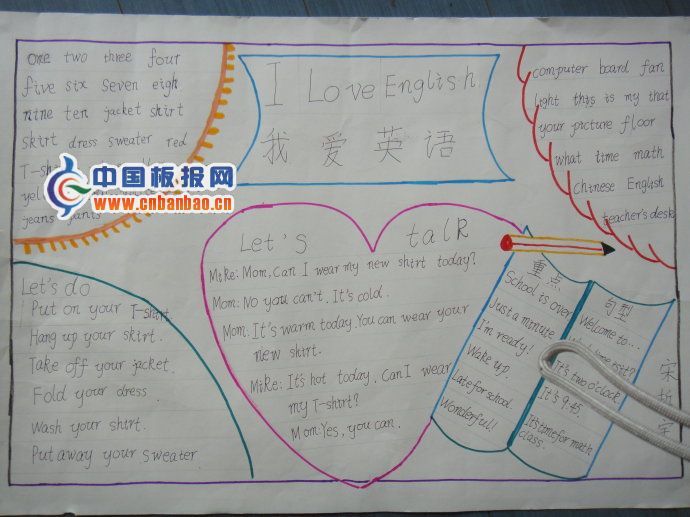 one two three four
five six seven eigh
nine ten jacket shirt
skirt dress sweater red
jeans pants
中国板报网
www.cnbanbao.cn
I Love English
我爱英语
computer board fan
light this is my that
your picture floor
what time math
Chinese English
teacher's desk
Let's do
Put on your T-shirt.
Hang up your skirt.
Take off your jacket.
Fold your dress.
Wash your shirt.
Put away your sweater
Let's talk
Mike: Mom, Can I wear my new shirt today?
Mom: No you can't. It's cold.
Mom: It's warm today. You can wear your
new shirt.
Mike: It's hot today. Can I wear
my T-shirt?
Mom: Yes, you can.
重点
School is over
Just a minute
I'm ready!
Wake up.
Late for school.
Wonderful!
句型
Welcome to....
It's two o'clock
It's 9:45.
It's time for math
class.
宋